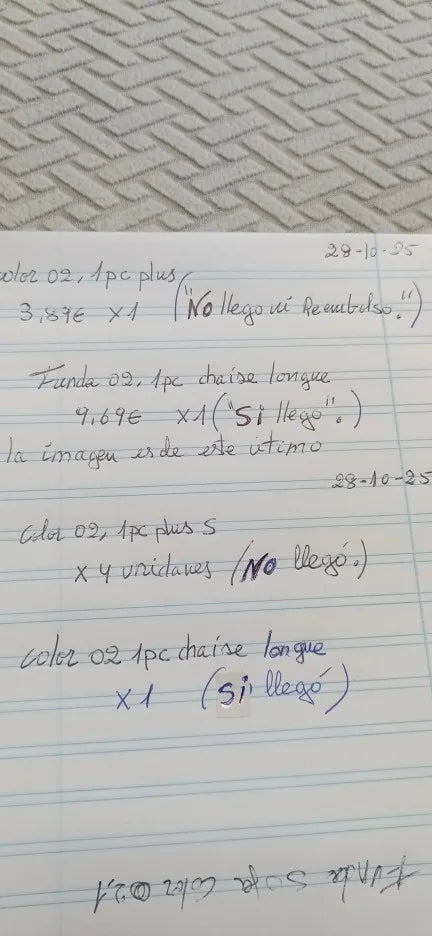 28-10-25
color 02, 1pc plus
3,89€ x1 ("No llego ni Reembolso.")
Funda 02, 1pc chaise longue
9,69€ x1 ("Si llego".)
la imagen es de este útimo
28-10-25
Color 02, 1pc plus S
x 4 unidades (No llegó.)
color 02 1pc chaise longue
x 1 (Si llegó)
Funda Sofa Color 02,1